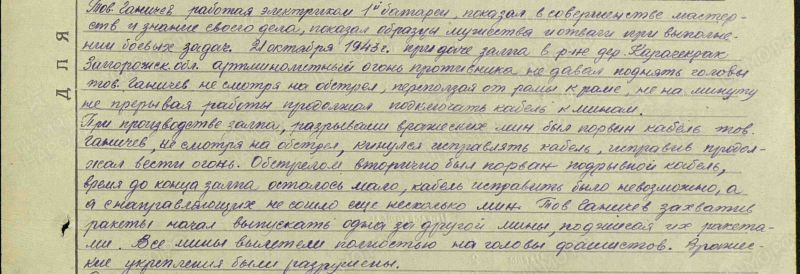 Тов. Ганичев работая электриком 1ой батареи, показал в совершенстве мастер-
ств и знание своего дела, показал образцы мужества и отваги при выполне-
нии боевых задач. 21 октября 1943 г. при даче залпа в р-не дер. Карачекрак
Запорожск. обл. артминометный огонь противника не давал поднять головы
тов. Ганичев не смотря на обстрел, переползая от рамы к раме, не на минуту
не прерывая работы продолжал подключать кабель к минам.
При производстве залпа, разрывами вражеских мин был порвин кабель тов.
Ганичев, не смотря на обстрел, кинулся исправлять кабель, исправив продол-
жал вести огонь. Обстрелом вторично был порван подрывной кабель,
время до конца залпа осталось мало, кабель исправить было невозможно, а
а с направляющих не сошло еще несколько мин. Тов Ганичев захватив
ракеты начал выпускать одна за другой мины, поджигая их ракета-
ми. Все мины вылетели полностью на головы фашистов. Вражес-
кие укрепления были разрушены.
Д Л Я